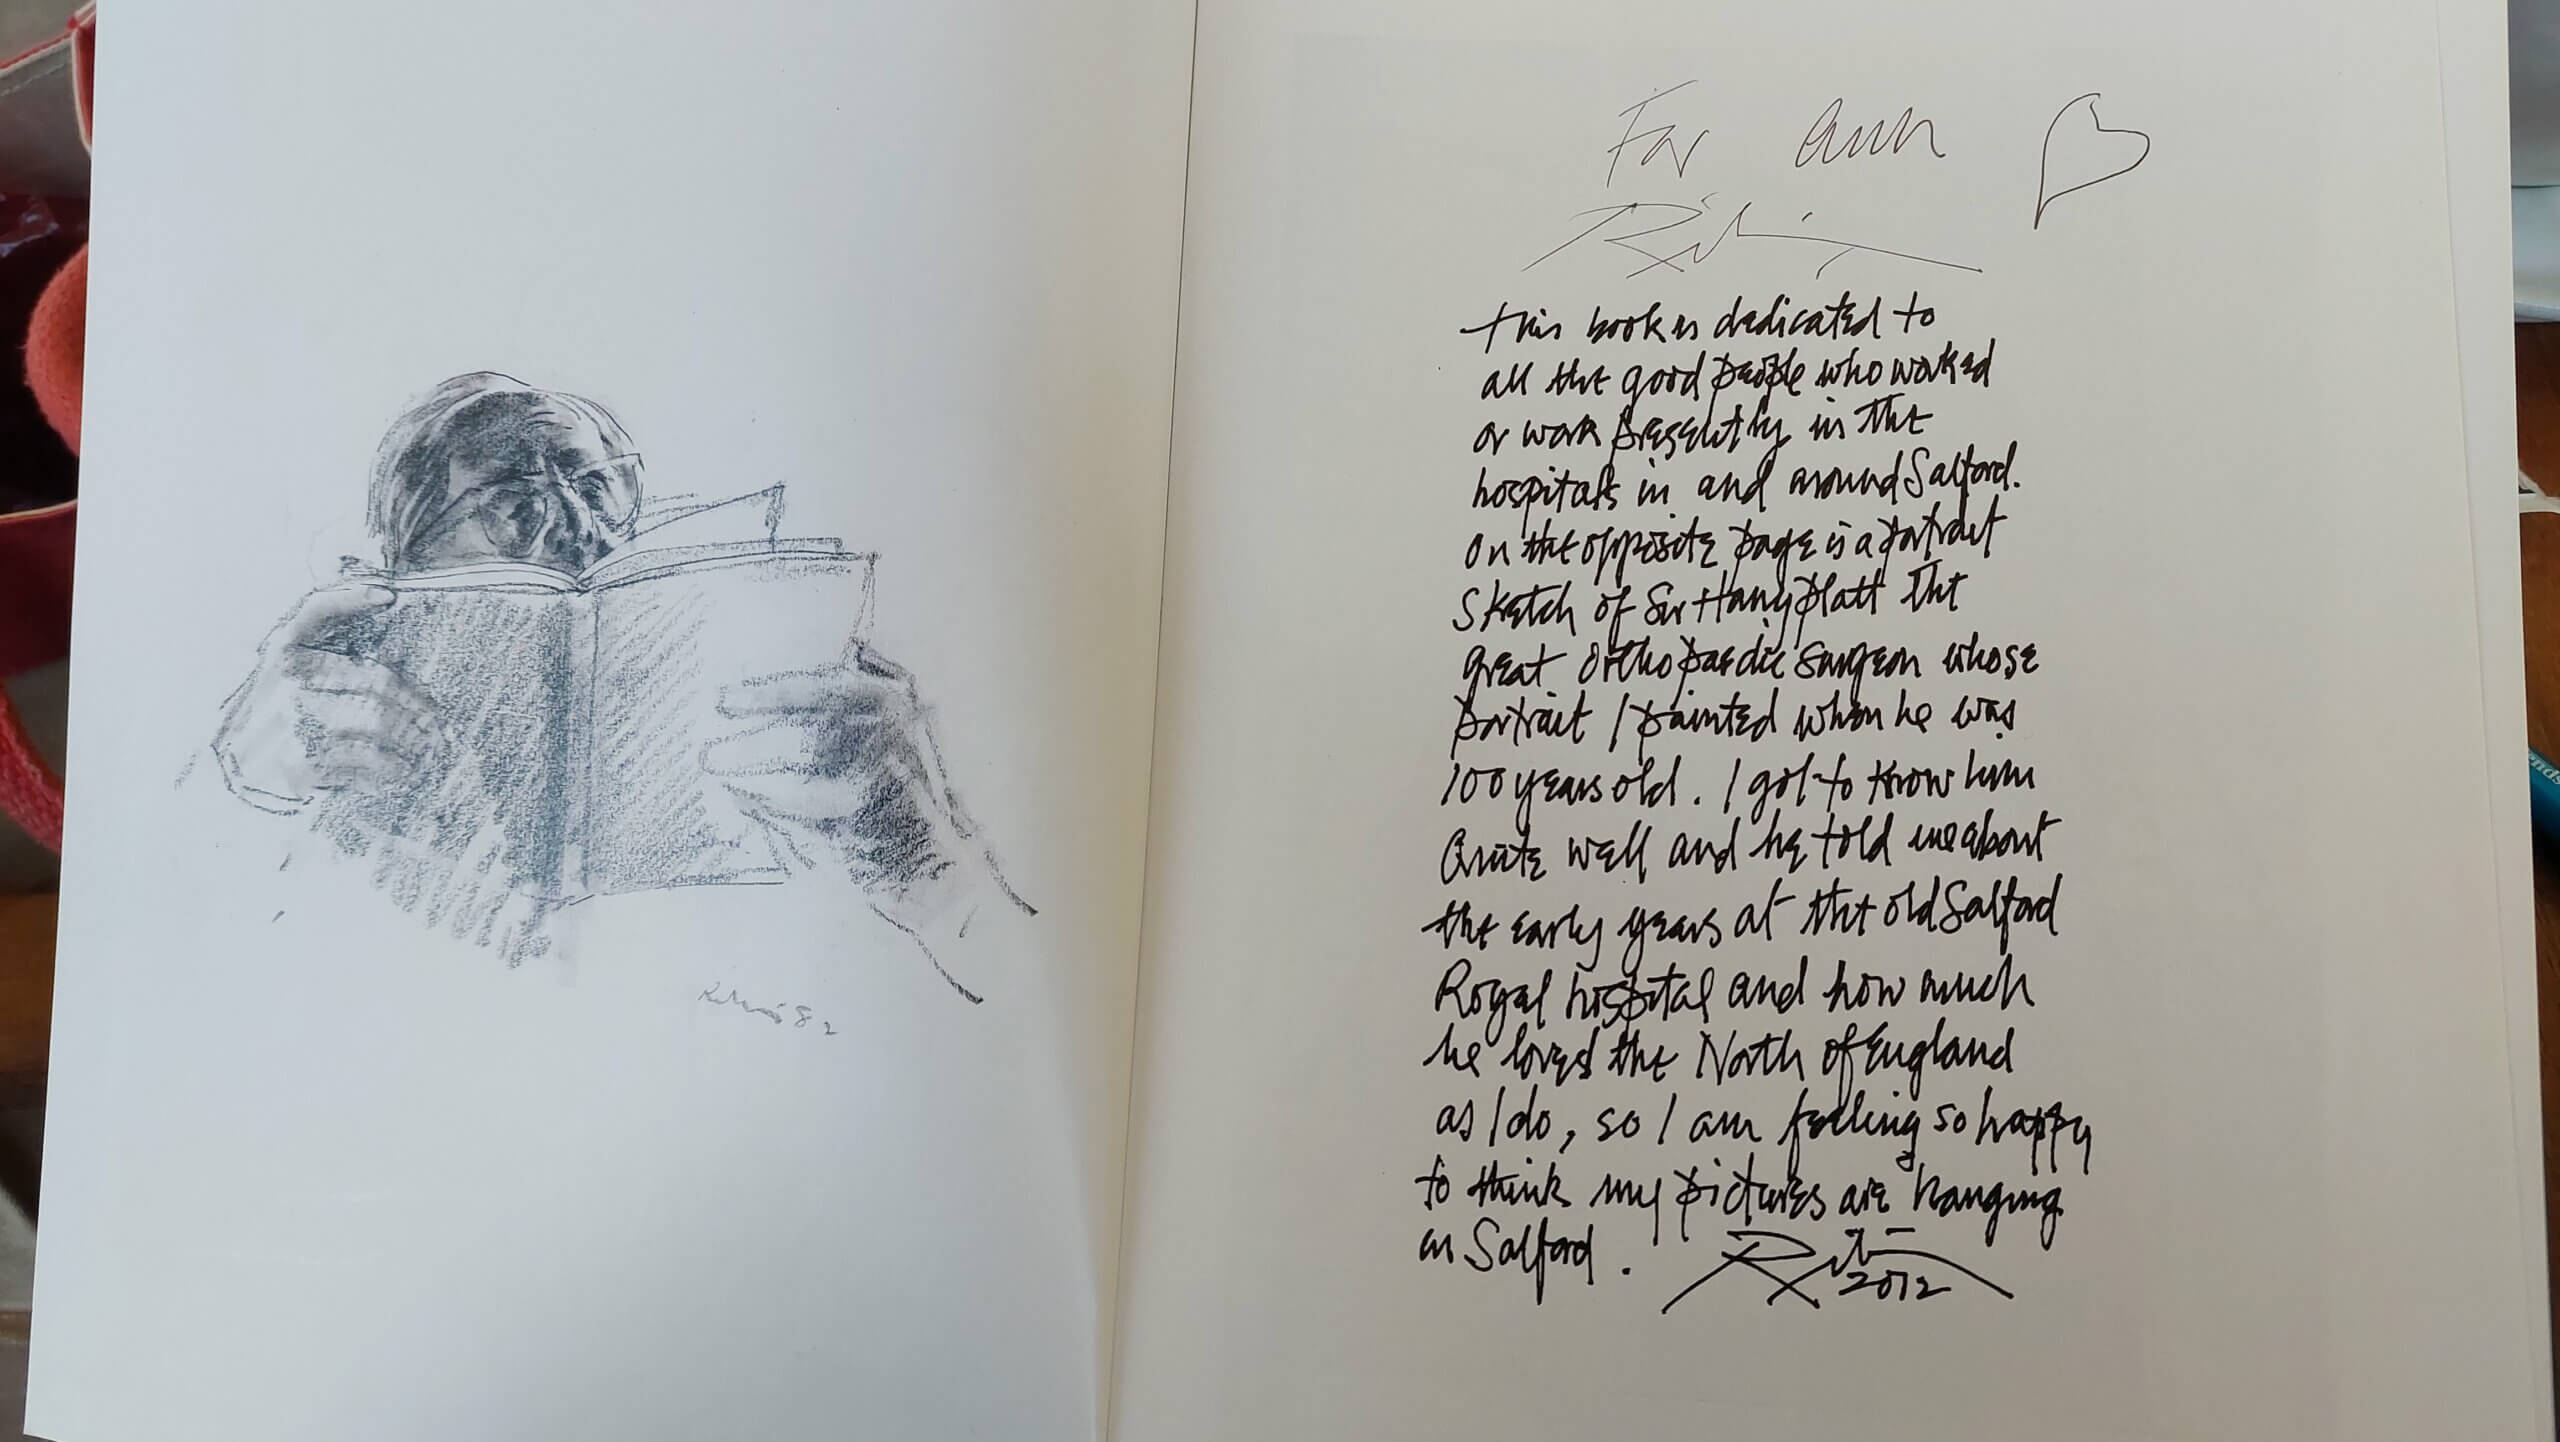 For Ann
This book is dedicated to
all the good people who worked
or work presently in the
hospitals in and around Salford.
On the opposite page is a portrait
Sketch of Sir Harry Platt the
great Orthopaedic Surgeon whose
portrait I painted when he was
100 years old. I got to know him
Quite well and he told me about
the early years at the old Salford
Royal hospital and how much
he loved the North of England
as I do, so I am feeling so happy
to think my pictures are hanging
in Salford.
2012